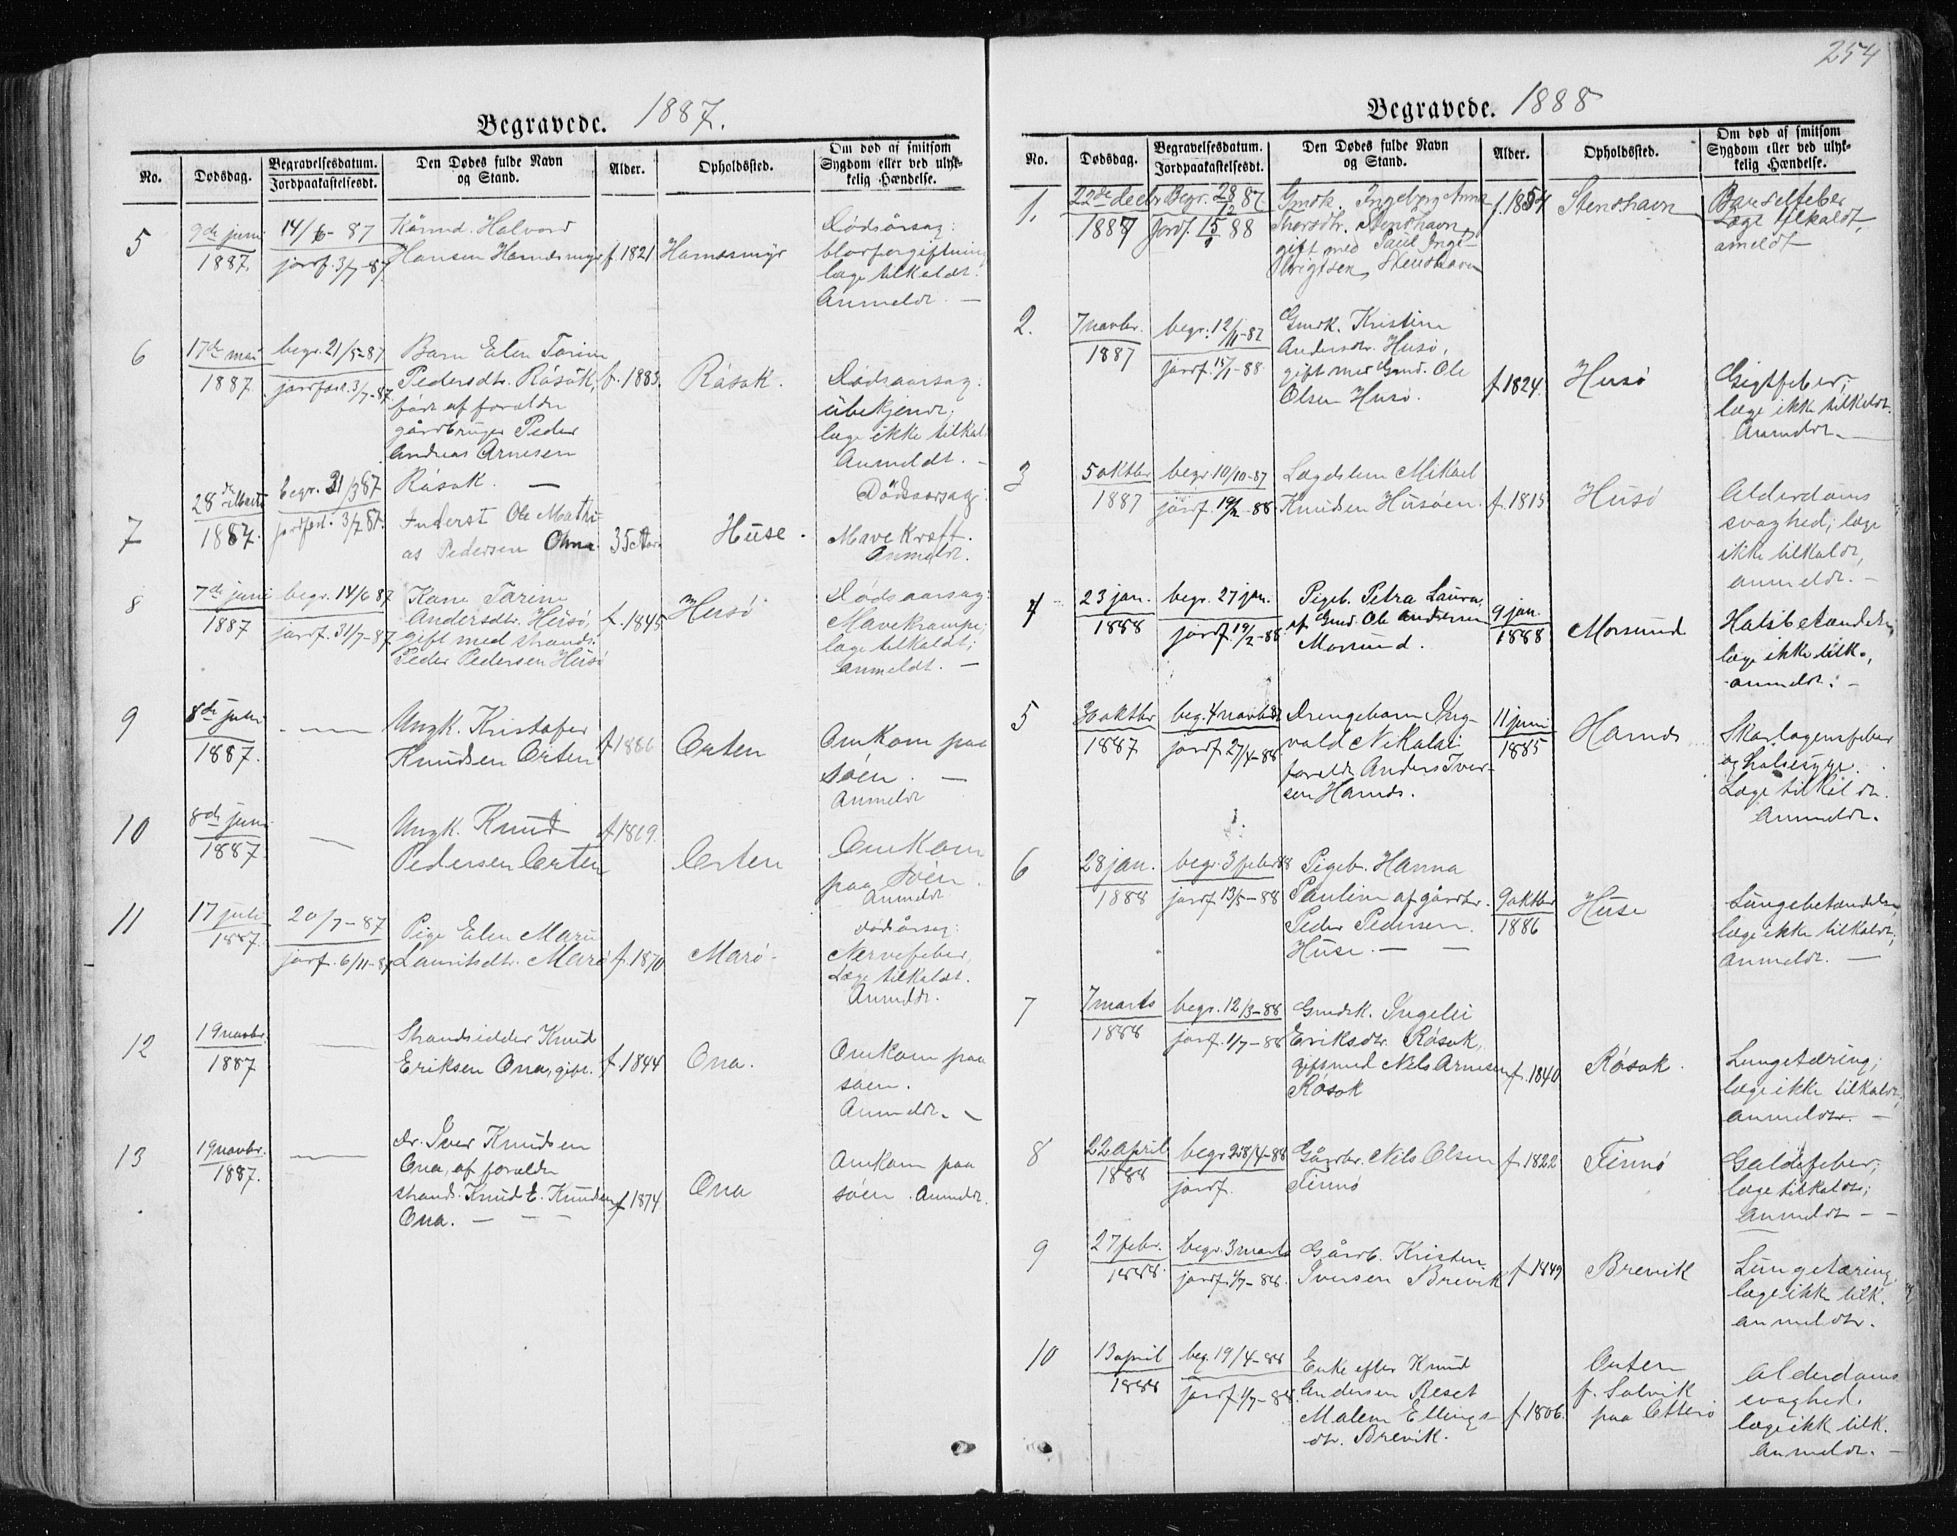 254
Begravede. 1887.
No.
Dødsdag.
Begravelsesdatum.
Jordpaakastelsesdt.
Den Dødes fulde Navn
og Stand.
Alder.
Opholdssted.
Om død af smitsom
Sygdom eller ved ulyk-
kelig Hændelse.
5
9de juni
1887.
14/6-87
jordf. 3/7-87.
Kårmd. Halvord
Hansen Harnæsmyr
f. 1821
Harnæsmyr
Dødsårsag:
blodforgiftning
læge tilkaldt.
Anmeldt. —
6
17de mai
1887.
begr. 21/5-87
jordfæst. 3/7-87.
Barn Elen Tarine
Pedersdtr. Råsåk,
født af forældre
gårdbruger Peder
Andreas Arnesen
Råsak. —
f. 1885.
Råsak.
Dødsaarsag:
ubekjendt;
læge ikke tilkaldt
Anmeldt. —
7
28de Marts
1887.
begr. 31/3 87
jordfæst. 3/7 87.
Inderst Ole Mathi-
as Pedersen Ohna.
35 Aar.
Huse.
Dødsaarsag:
Mave Kræft.
Anmeldt.
8
7de juni
1887
begr. 14/6 87
jordf. 31/7-87
Kone Tarine
Andersdtr. Husø,
gift med strands.
Peder Pedersen Husø
f. 1845
Husø
Dødsaarsag:
Mavekrampe;
læge tilkaldt;
Anmeldt. —
9
8de juni
1887.
—
Ungk. Kristofer
Knudsen Orten
f 1886
Orten
Omkom paa
søen. —
Anmeldt
10
8de juni
1887.
—
Ungk. Knud
Pedersen Orten
f 1869.
Orten
Omkom
paa søen.
Anmeldt
11
17 juli
1887.
20/7-87
jordf. 6/11-87
Pige Elen Marie
Lauritsdtr. Marø
f. 1870
Marø.
dødsårsag:
Nervefeber,
Læge tilkaldt.
Anmeldt.
12
19 novbr.
1887
—
Strandsidder Knud
Eriksen Ona, gift.
f 1844
Ona.
Omkom paa
søen.
Anmeldt. —
13
19 novbr.
1887.
—
dr. Iver Knudsen
Ona, af forældre
strands. Knud E. Knudsen
Ona. — — —
f 1874
Ona
Omkom paa
søen. Anmeldt.
Begravede. 1888
No.
Dødsdag.
Begravelsesdatum.
Jordpaakastelsesdt.
Den Dødes fulde Navn
og Stand.
Alder.
Opholdssted.
Om død af smitsom
Sygdom eller ved ulyk-
kelig Hændelse.
1.
22de decbr
1887
Begr. 28/12 87.
Jordf. 15/ 88
Gmdk. Ingeborg Anna
Thorsdtr. Stenshavn,
gift med Paul Inge-
brigtsen, Stenshavn
f. 1854
Stenshavn
Barselfeber
Læge tilkaldt,
anmeldt
2.
7 novbr.
1887
begr. 12/11-87
jordf. 15/1-88
Gmdk. Kristine
Andersdtr. Husø,
gift med Gmd. Ole
Olsen Husø.
f 1824.
Husø
Gigtfeber;
læge ikke tilkaldt.
Anmeldt. —
3
5 oktbr
1887
begr. 10/10-87
jordf. 19/2-88
Lægdslem Mikael
Knudsen Husøen.
f. 1815
Husø
Alderdoms
svaghed; læge
ikke tilkaldt,
anmeldt. —
4
23 jan.
1888
begr. 27 jan.
jordf. 19/2-88
Pigeb. Petra Laura,
af Gmd. Ole Andersen
Morsund.
9 jan.
1888
Morsund
Halsbetændelse
læge ikke tilk.,
anmeldt. —
5
30 oktbr
1887
beg. 4 novb 87
jordf. 27/4-88
Drengebarn Ing-
vald Nikolai
foreldr. Anders Iver-
sen Harnæs.
11 juni
1885
Harnæs
Skarlagensfeber
og halssyge.
Læge tilkaldt.
Anmeldt.
6
28 jan.
1888
begr. 3 febr 88
jordf 13/5-88
Pigeb. Hanna
Pauline af gårdbr.
Peder Pedersen
Huse. — —
9 oktbr
1886
Huse
Lungebetændelse
læge ikke tilkaldt,
anmeldt. —
7
7 marts
1888
begr. 12/3-88
jordf. 1/7-88
Gmdsk. Ingelei
Eriksdtr. Røsok,
gift med Nils Arnesen
Røsok
f. 1840
Røsok.
Lungetæring;
læge ikke tilkaldt,
anmeldt. —
8
22 april
1888
begr 28/4-88
jordf.
Gårdbr. Nils Olsen
Finnø
f 1822
Finnø
Galdefeber;
læge tilkaldt;
Anmeldt — —
9
27 febr.
1888.
begr. 3 marts
jordf. 1/7-88.
Gårdb. Kristen
Iversen Brevik
f 1849
Brevik
Lungetæring
læge ikke tilk.
anmeldt.
10
13 april
1888
beg. 19/4-88
jordf 1/7-88.
Enke efter Knud
Andersen Reset
Malene Ellings-
dtr. Brevik.
f 1806.
Outern
f. Solvik
paa Otterø
Alderdoms
svaghed.
læge ikk tilk.
Anmeldt. —